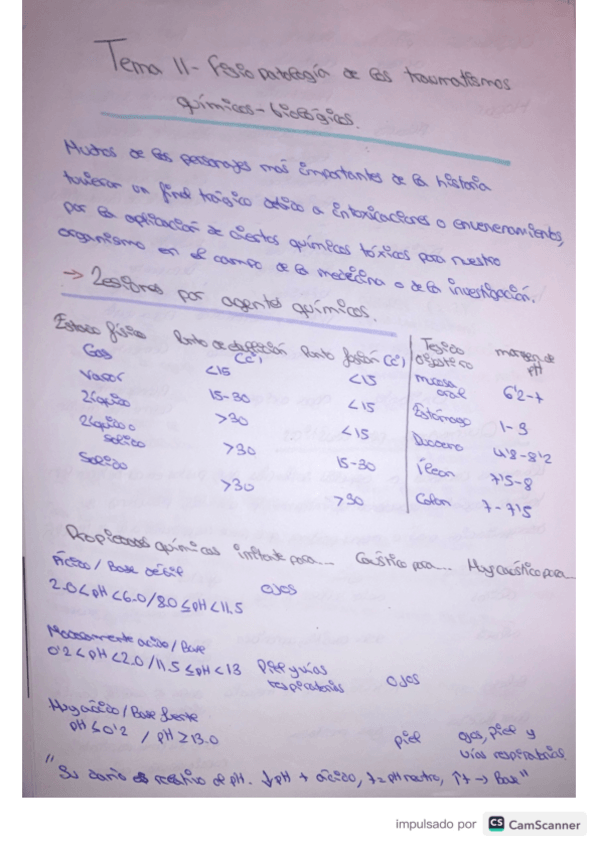 Tema 11- Fisiopatología de los traumatismos
químicos-biológicos.
Muchos de los personajes más importantes de la historia
tuvieron un final trágico debido a intoxicaciones o envenenamientos,
por la aplicación de ciertos químicos tóxicos para nuestro
organismo en el campo de la medicina o de la investigación.
→ Lesiones por agentes químicos.
Estado físico Punto de ebullición (Cº) Punto fusión (Cº)
Gas <15 <15
Vapor 15-30 <15
Líquido >30 <15
Líquido o sólido >30 15-30
Sólido >30 >30
Tejido digestivo margen de pH
mucosa oral 6'2-7
Estómago 1-3
Duodeno 4'8-8'2
Íleon 7'5-8
Colon 7-7'5
Propiedades químicas irritante para.... Caústico para.... Muy caústico para...
Ácido / Base débil
2.0<pH<6.0/8.0≤pH<11.5 ojos
Moderadamente ácido / Base
0'2<pH<2.0/11.5≤pH<13 Piel y vías respiratorias ojos
Muy ácido / Base fuerte
pH≤0'2 / pH≥13.0 piel ojos, piel y vías respiratorias.
"Su daño es relativo al pH. ↓pH + ácido, 7=pH neutro, ↑7 → Base"
impulsado por CS CamScanner